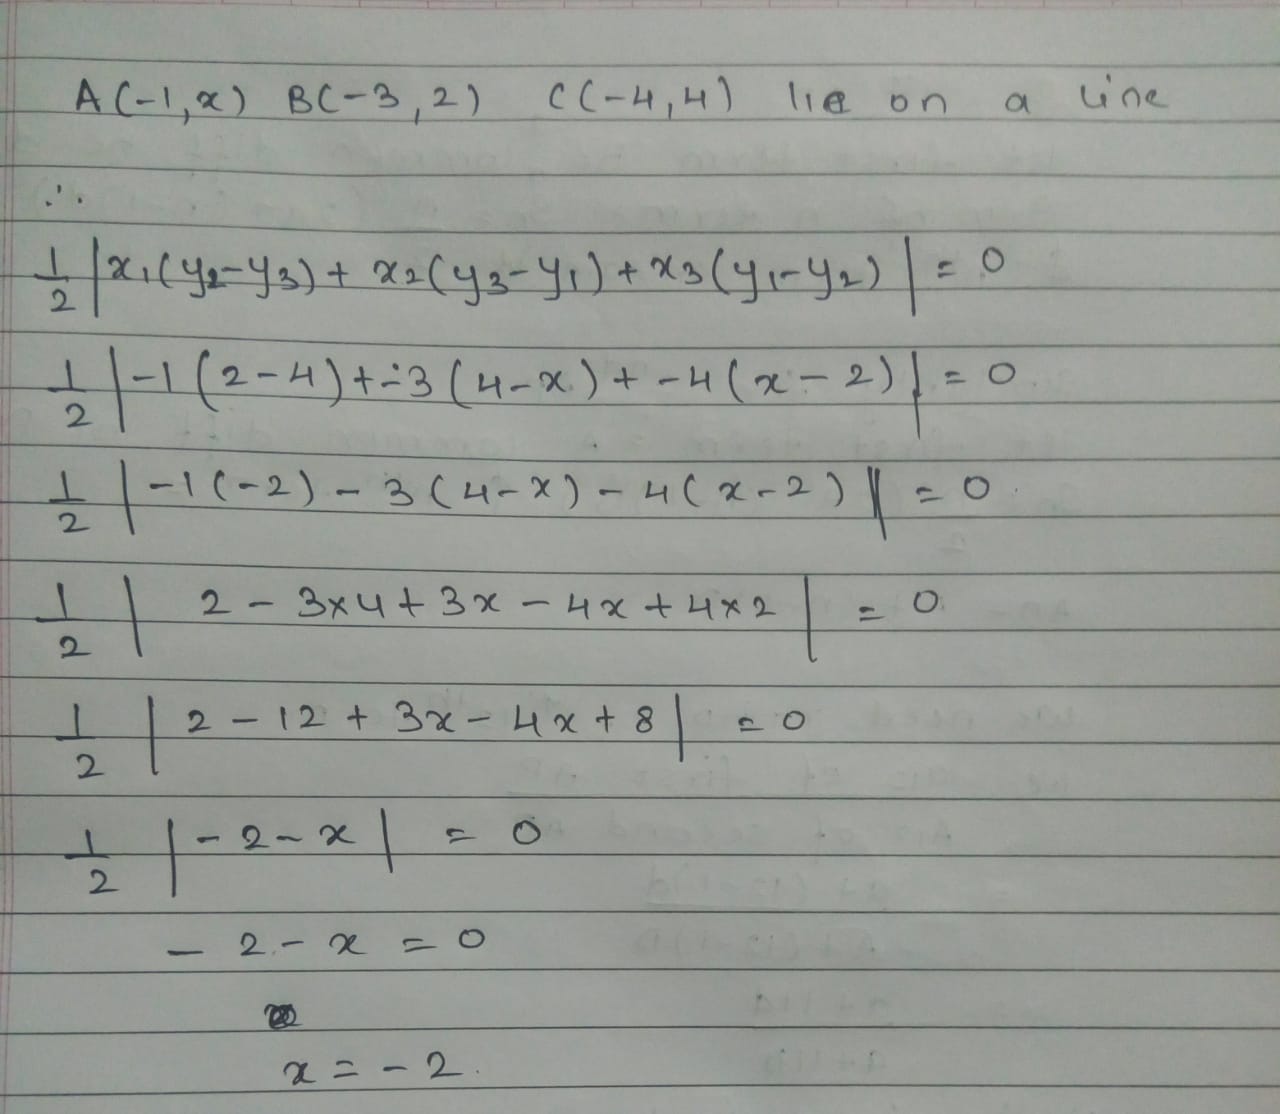 A(-1,x) B(-3,2) C(-4,4) lie on a line
∴
1/2 |x₁(y₂-y₃)+ x₂(y₃-y₁)+x₃(y₁-y₂)| = 0
1/2 |-1(2-4)+-3(4-x)+ -4(x-2)| = 0
1/2 |-1(-2)-3(4-x)-4(x-2)| = 0
1/2 | 2-3×4+3x-4x+4×2| = 0
1/2 | 2-12+3x-4x+8| = 0
1/2 |-2-x| = 0
-2-x = 0
x = -2.